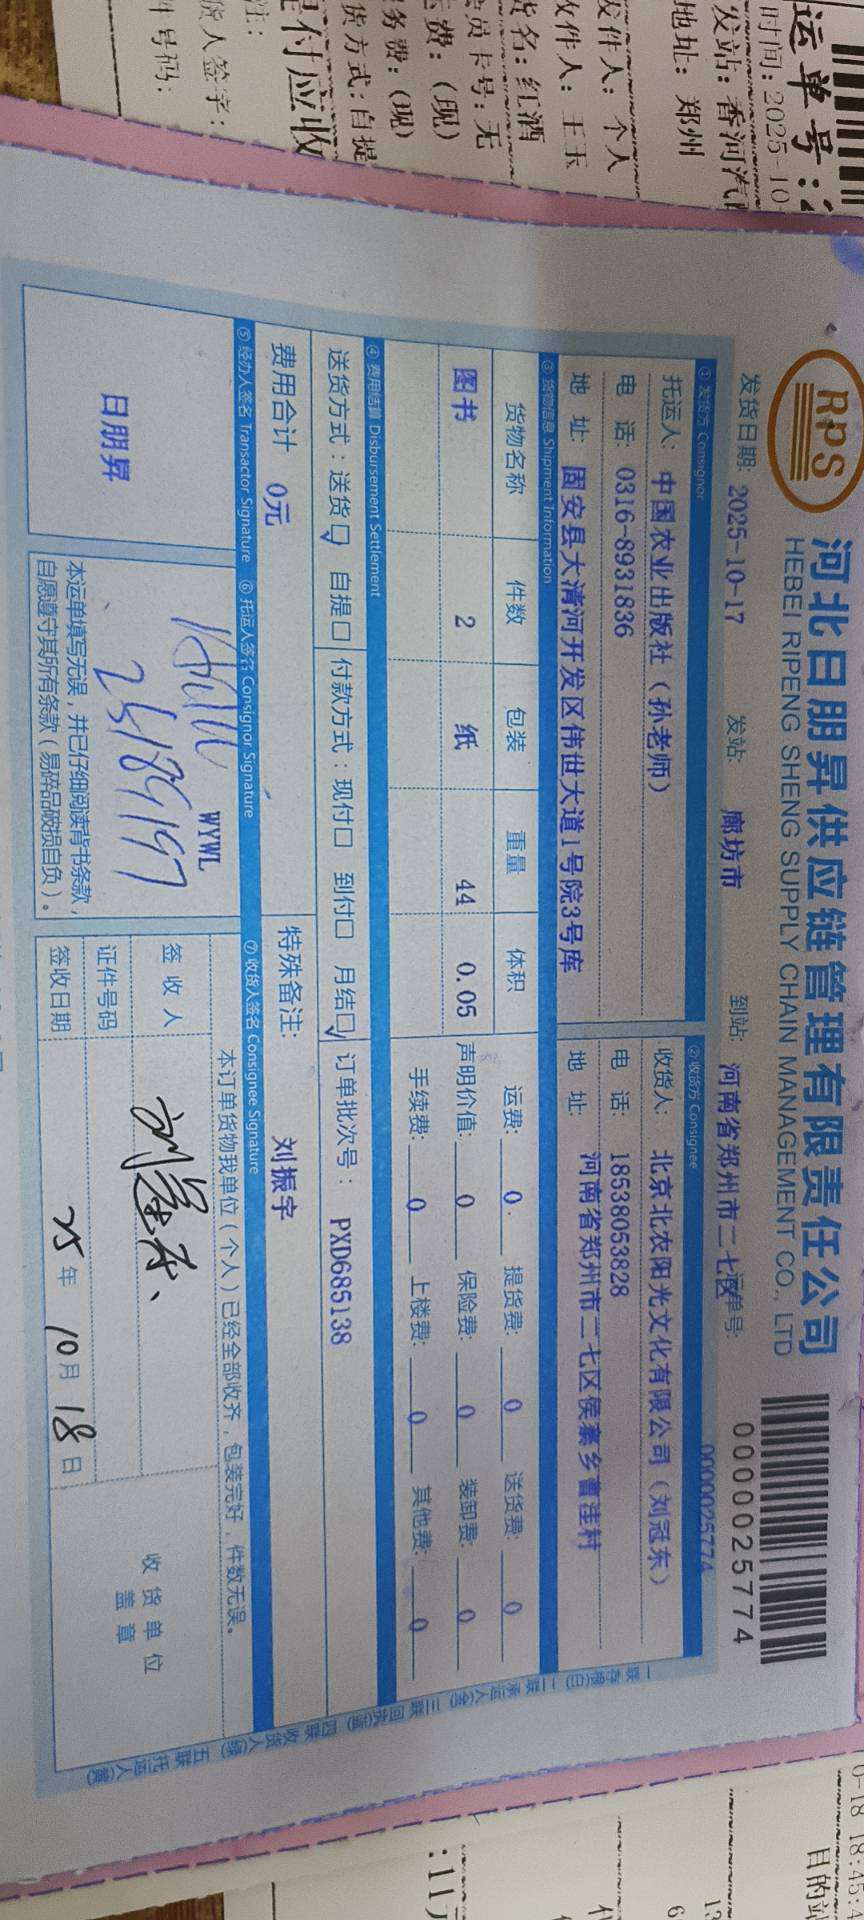 RPS
河北日朋昇供应链管理有限责任公司
HEBEI RIPENG SHENG SUPPLY CHAIN MANAGEMENT CO., LTD
0000025774
发货日期: 2025-10-17 发站: 廊坊市 到站: 河南省郑州市二七区 运单号:
0000025774
① 发货方 Consignor ② 收货方 Consignee
托运人: 中国农业出版社（孙老师） 收货人: 北京北农阳光文化有限公司（刘冠东）
电 话: 0316-8931836 电 话: 18538053828
地 址: 固安县大清河开发区伟世大道1号院3号库 地 址: 河南省郑州市二七区侯寨乡曹洼村
③ 货物信息 Shipment Information
货物名称 件数 包装 重量 体积 运费: 0 提货费: 0 送货费: 0
图书 2 纸 44 0.05 声明价值: 0 保险费: 0 装卸费: 0
手续费: 0 上楼费: 0 其他费: 0
④ 费用结算 Disbursement Settlement
送货方式: 送货☑ 自提□ 付款方式: 现付□ 到付□ 月结☑ 订单批次号: PXD685138
费用合计 0元 特殊备注: 刘振宇
⑤ 经办人签名 Transactor Signature ⑥ 托运人签名 Consignor Signature ⑦ 收货人签名 Consignee Signature
日朋昇
WYWL
本运单填写无误，并已仔细阅读背书条款，
自愿遵守其所有条款（易碎品破损自负）。
本订单货物我单位（个人）已经全部收齐，包装完好，件数无误。
签 收 人
证件号码
签收日期 25年 10月 18日
收货单位
盖 章
一联存根(白) 二联承运人(金) 三联回执(蓝) 四联收货人(绿) 五联托运人(黄)
运单号:
时间: 2025-10
发站: 香河汽
地址: 郑州
发件人: 个人
收件人: 王玉
货名: 红酒
员卡号: 无
费: (现)
务费: (现)
货方式: 自提
付应收
注:
货人签字:
件号码:
0-18 18:45:4
目的站
:11元